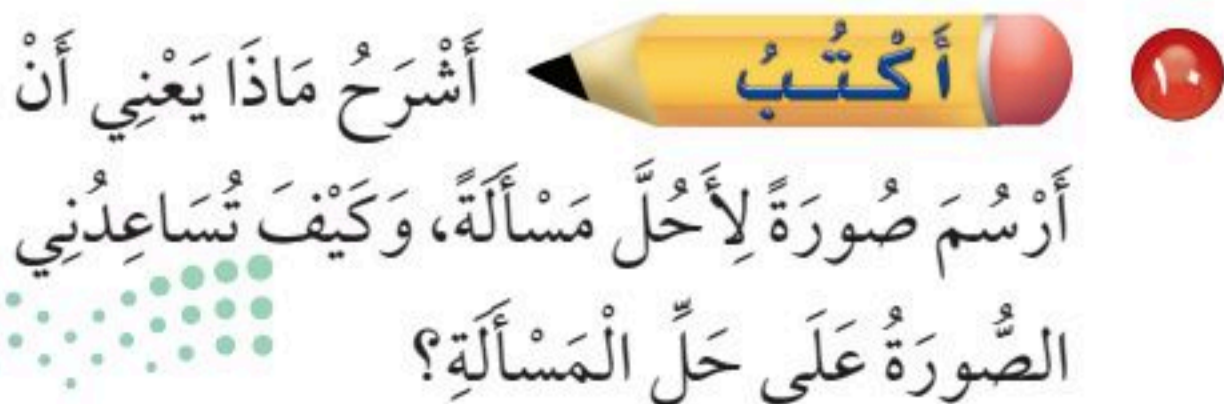 ١٠ أَكْتُبُ أَشْرَحُ مَاذَا يَعْنِي أَنْ
أَرْسُمَ صُورَةً لِأَحُلَّ مَسْأَلَةً، وَكَيْفَ تُسَاعِدُنِي
الصُّورَةُ عَلَى حَلِّ الْمَسْأَلَةِ؟